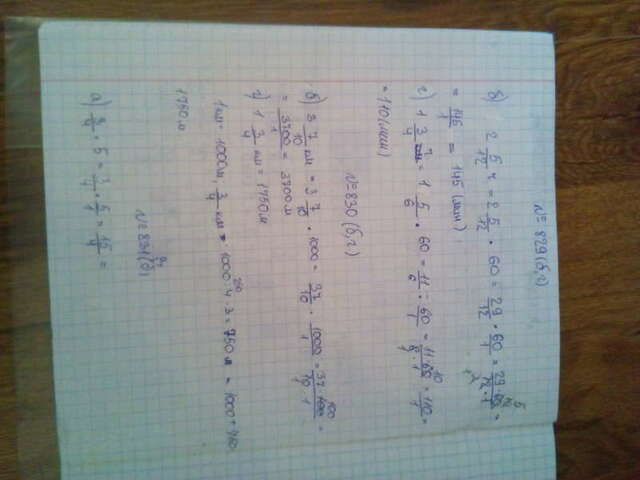 № 829 (б, г)
б) 2 5/12 ч = 2 5/12 · 60 = 29/12 · 60/1 = 29 · 60/12 · 1 =
= 145/1 = 145 (мин)
г) 1 5/6 · 60 = 11/6 · 60/1 = 11 · 60/6 · 1 = 110/1 =
= 110 (мин)
№ 830 (б, г)
б) 3 7/10 км = 3 7/10 · 1000 = 37/10 · 1000/1 = 37 · 1000/10 · 1 =
= 3700/1 = 3700 м
г) 1 3/4 км = 1750 м
1 км = 1000 м, 3/4 км = 1000 : 4 · 3 = 750 м = 1000 + 750
1750 м
№ 831
а) 3/4 · 5 = 3/4 · 5/1 = 15/4 =